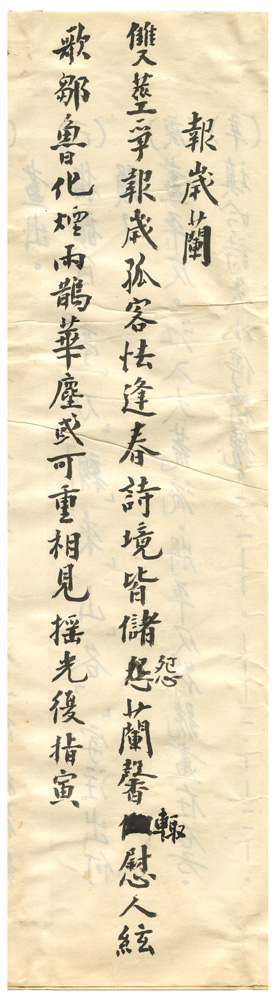 報歲蘭
雙莖爭報歲孤客怯逢春詩境皆儲怨蘭馨輙慰人絃
歌鄒魯化煙雨鵲華塵或可重相見搖光復指寅